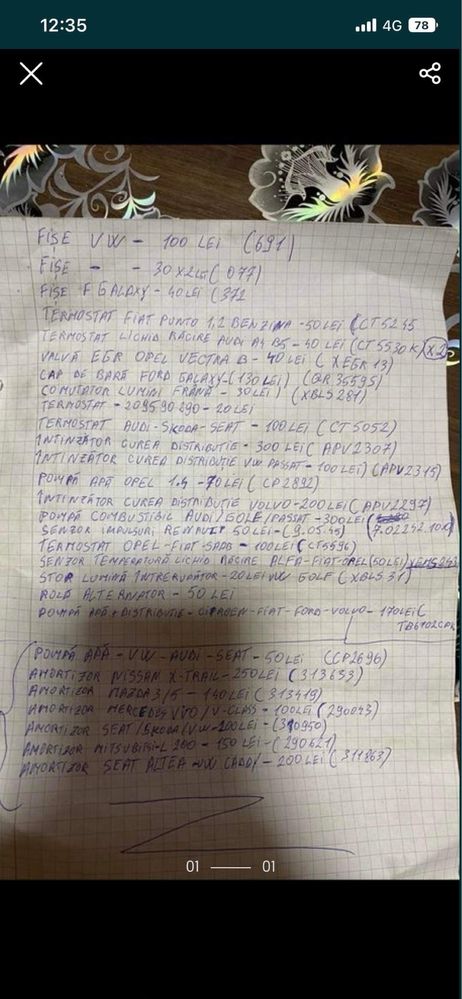 12:35
4G 78
FIȘE VW - 100 LEI (691)
FIȘE - - 30X2LEI (077)
FIȘE F GALAXY - 40LEI (372
TERMOSTAT FIAT PUNTO 1,2 BENZINA - 50 LEI (CT5245
TERMOSTAT LICHID RĂCIRE AUDI A4 B5 - 40 LEI (CT5530K) (X2)
VALVĂ EGR OPEL VECTRA B - 40LEI (XEGR13)
CAP DE BARĂ FORD GALAXY - (130 LEI) (QR3559S)
COMUTATOR LUMINI FRÂNĂ - 30LEI) (XBLS281)
TERMOSTAT - 209590290 - 20LEI
TERMOSTAT AUDI-SKODA-SEAT - 100LEI (CT5052)
INTINZĂTOR CUREA DISTRIBUTIE - 300 LEI (APV2307)
INTINZĂTOR CUREA DISTRIBUȚIE VW PASSAT - 100LEI) (APV2315)
POMPĂ APĂ OPEL 1.4 - 70LEI (CP2892)
INTINZĂTOR CUREA DISTRIBUȚIE VOLVO - 200LEI (APV2297)
POMPĂ COMBUSTIBIL AUDI/GOLF/PASSAT - 300LEI (7.02242.10X)
SENZOR IMPULSURI RENAULT 50LEI - (9.05.45)
TERMOSTAT OPEL-FIAT-SAAB - 100LEI (CT5596)
SENZOR TEMPERATURĂ LICHID RĂCIRE ALFA-FIAT-OPEL (60LEI)
STOP LUMINĂ INTRERUPĂTOR - 20LEI VW GOLF (XBLS31)
ROLĂ ALTERNATOR - 50 LEI
POMPĂ APĂ + DISTRIBUTIE - CITROEN-FIAT-FORD-VOLVO - 170LEI (
POMPĂ APĂ - VW-AUDI-SEAT - 50LEI (CP2696)
AMORTIZOR NISSAN X-TRAIL - 250LEI (313653)
AMORTIZOR MAZDA 3/5 - 140LEI (313419)
AMORTIZOR MERCEDES VITO/V-CLASS - 100LEI (290043)
AMORTIZOR SEAT/SKODA/VW - 200LEI - (310950)
AMORTIZOR MITSUBISI-L200 - 150 LEI - (290621)
AMORTIZOR SEAT ALTEA - VW CADDY - 200LEI (311863)
01 01